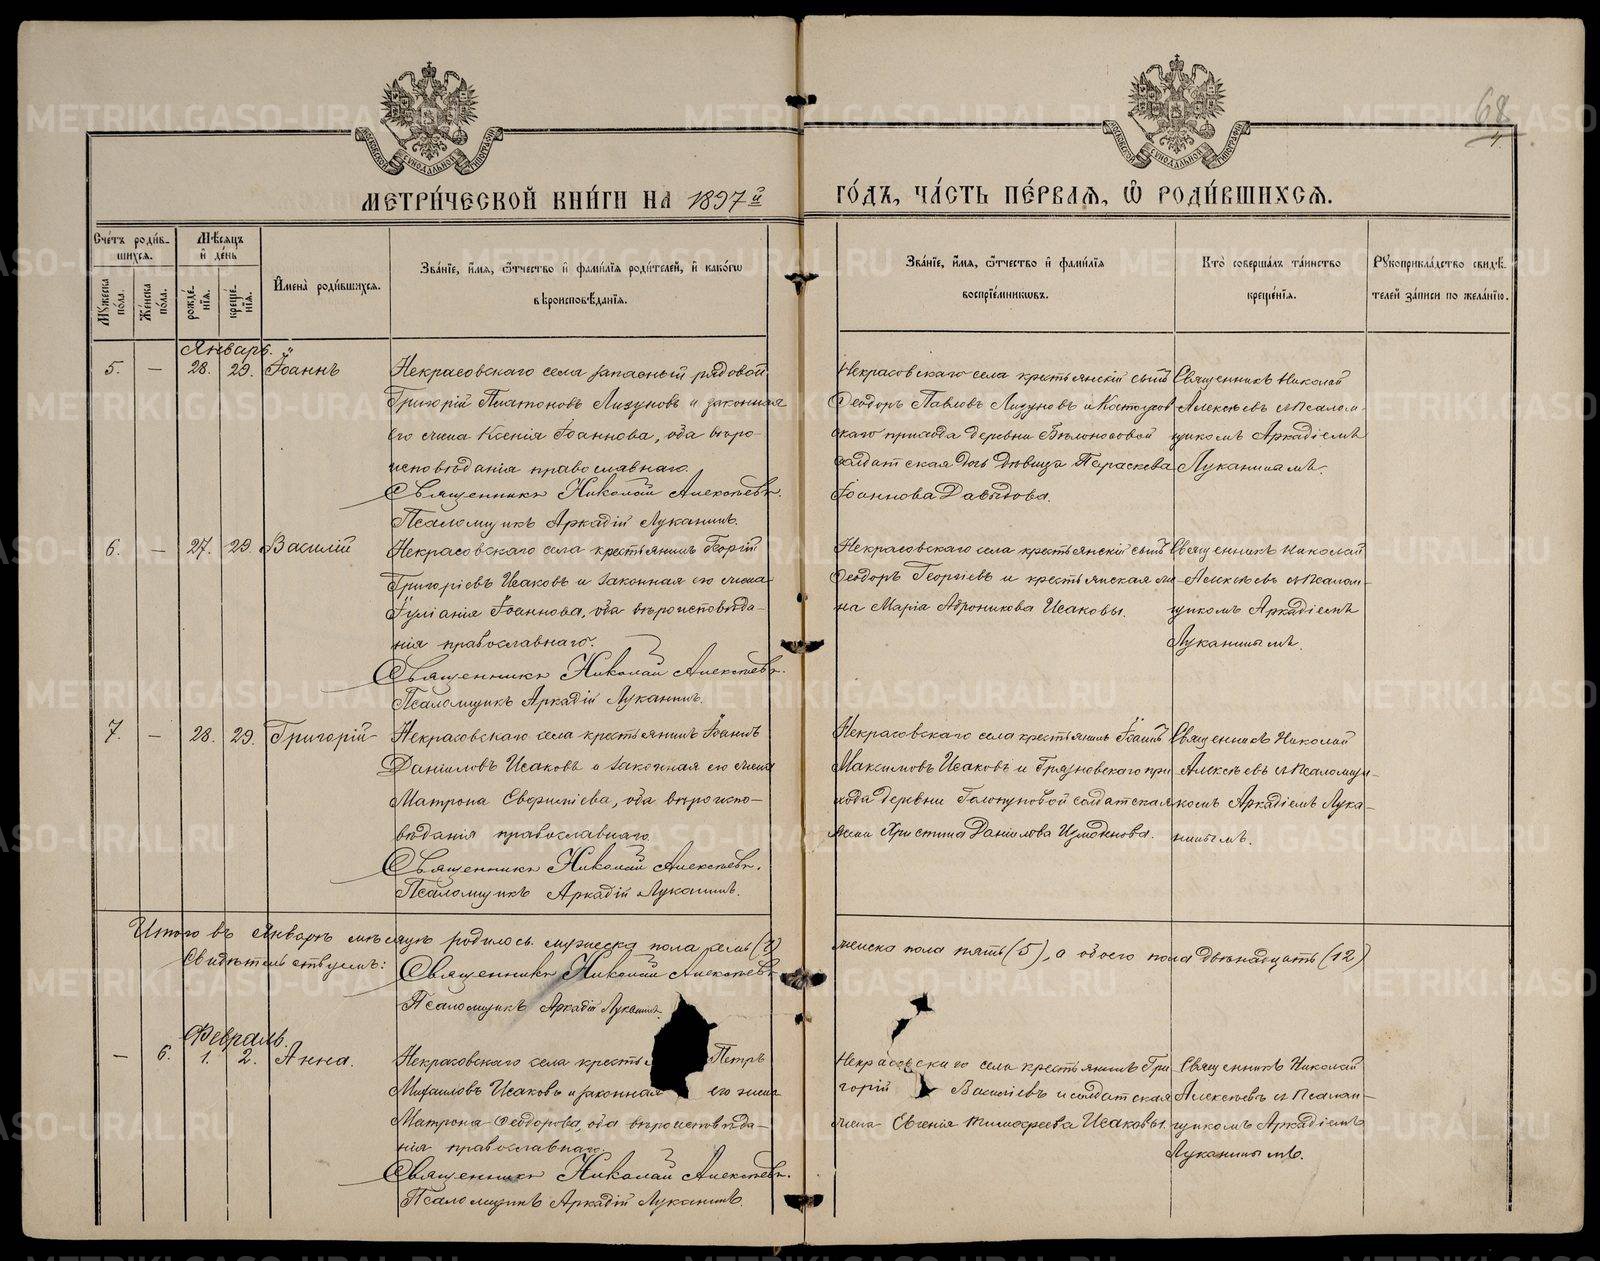 68
МЕТРИ́ЧЕСКОЙ КНИ́ГИ НА 1897й ГО́ДЪ, ЧА́СТЬ ПЕ́РВАѦ, Ѡ҆ РОДИ́ВШИХСѦ.
Сче́тъ роди́в-
шихсѧ.
Мѣ́сѧцъ
и҆ де́нь
Мꙋ́жеска по́ла.
Же́нска по́ла.
рожде́-
нїѧ.
креще́-
нїѧ.
И҆мена̀ роди́вшихсѧ.
Зва́нїе, и҆́мѧ, ѻ҆́тчество и҆ фами́лїѧ роди́телей, и҆ како́гѡ
вѣроисповѣ́данїѧ.
Зва́нїе, и҆́мѧ, ѻ҆́тчество и҆ фами́лїѧ
воспрїе́мникѡвъ.
Кто̀ соверша́лъ та́инство
креще́нїѧ.
Рꙋкоприкла́дство свидѣ́-
телей за́писи по жела́нїю.
Январь.
5. — 28. 29. Іоаннъ
Некрасовскаго села запасный рядовой
Григорій Платоновъ Лизуновъ и законная
его жена Ксенія Іоаннова, оба вѣро-
исповѣданія православнаго.
Священникъ Николай Алексѣевъ.
Псаломщикъ Аркадій Луканинъ.
Некрасовскаго села крестьянскій сынъ
Ѳеодоръ Павловъ Лизуновъ и
скаго прихода деревни Бѣлоносовой
солдатская дочь дѣвица Параскева
Іоаннова Давыдова.
Священникъ Николай
Алексѣевъ съ псалом-
щикомъ Аркадіемъ
Луканинымъ.
6. — 27. 29. Василій
Некрасовскаго села крестьянинъ Георгій
Григоріевъ Исаковъ и законная его жена
Іуліанія Іоаннова, оба вѣроисповѣда-
нія православнаго.
Священникъ Николай Алексѣевъ.
Псаломщикъ Аркадій Луканинъ.
Некрасовскаго села крестьянскій сынъ
Ѳеодоръ Георгіевъ и крестьянская же-
на Марія Андроникова Исаковы.
Священникъ Николай
Алексѣевъ съ псалом-
щикомъ Аркадіемъ
Луканинымъ.
7. — 28. 29. Григорій
Некрасовскаго села крестьянинъ Іоаннъ
Даніиловъ Исаковъ и законная его жена
Матрона оба вѣроиспо-
вѣданія православнаго.
Священникъ Николай Алексѣевъ.
Псаломщикъ Аркадій Луканинъ.
Некрасовскаго села крестьянинъ Іоаннъ
Максимовъ Исаковъ и Грязновскаго при-
хода деревни солдатская
жена Христина Даніилова
Священникъ Николай
Алексѣевъ съ псаломщи-
комъ Аркадіемъ Лука-
нинымъ.
Итого въ Январѣ мѣсяцѣ родилось: мужеска пола семь (7)
женска пола пять (5), а обоего пола двѣнадцать (12)
Свидѣтельствуемъ:
Священникъ Николай Алексѣевъ
Псаломщикъ Аркадій Луканинъ.
Февраль.
— 6. 1. 2. Анна.
Некрасовскаго села Петръ
Михаиловъ Исаковъ и законная его жена
Матрона Ѳеодорова, оба вѣроисповѣда-
нія православнаго.
Священникъ Николай Алексѣевъ.
Псаломщикъ Аркадій Луканинъ.
Некрасовскаго села крестьянинъ Гри-
горій Василіевъ и солдатская
жена Евгенія Тимофеева Исаковы.
Священникъ Николай
Алексѣевъ съ псалом-
щикомъ Аркадіемъ
Луканинымъ.
METRIKI.GASO-URAL.RU